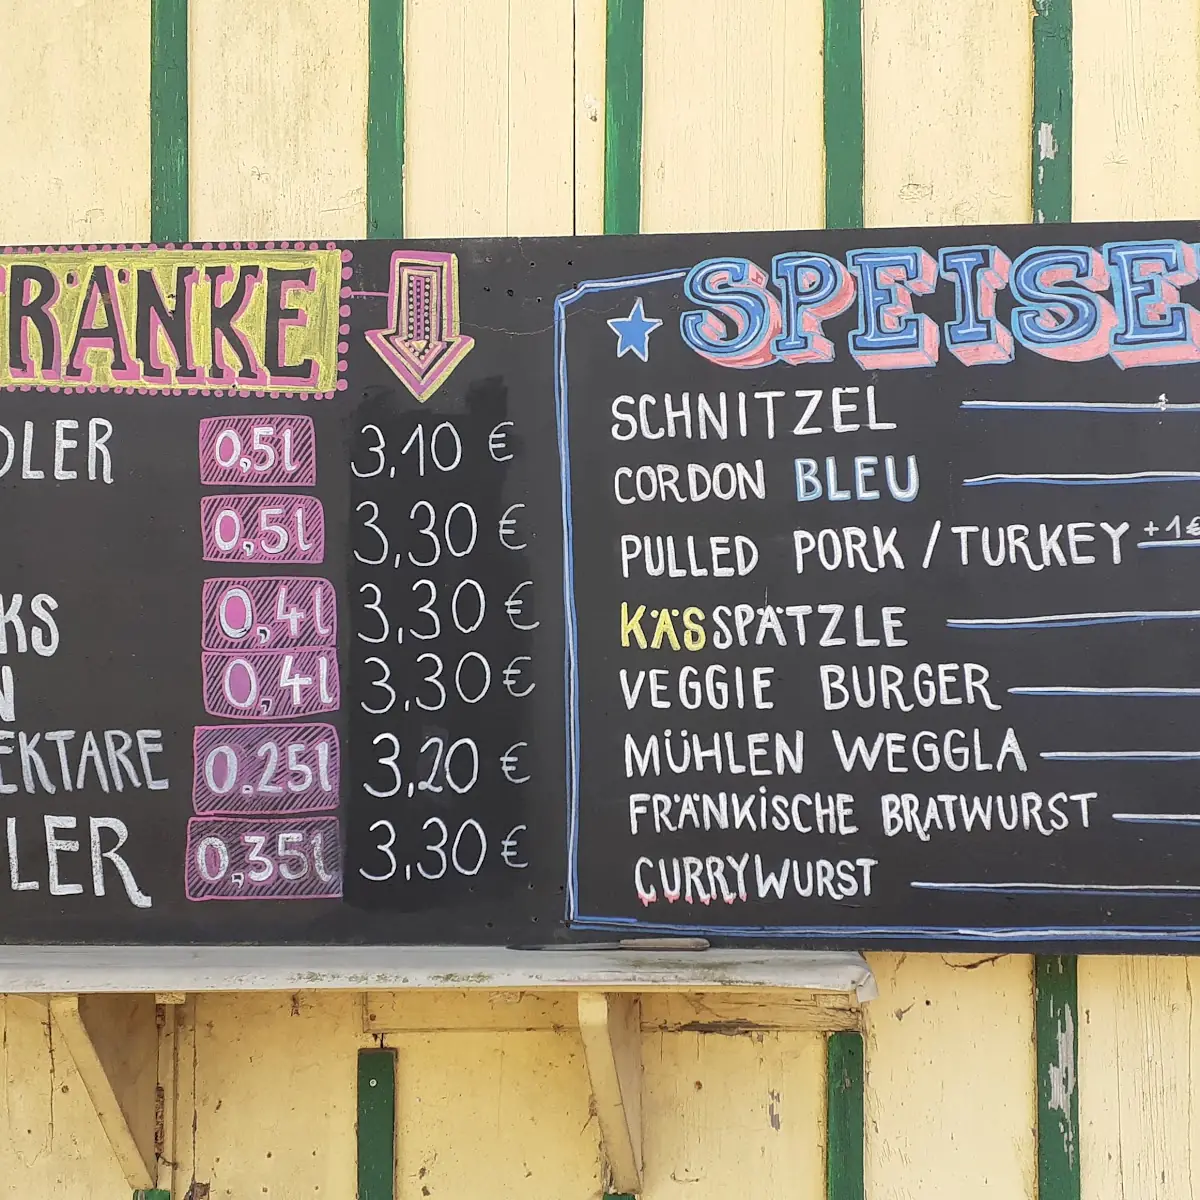 RÄNKE
DLER 0,5l 3,10 €
0,5l 3,30 €
KS 0,4l 3,30 €
N 0,4l 3,30 €
EKTARE 0.25l 3,20 €
LER 0,35l 3,30 €
SPEISE
SCHNITZEL
CORDON BLEU
PULLED PORK / TURKEY +1€
KÄSSPÄTZLE
VEGGIE BURGER
MÜHLEN WEGGLA
FRÄNKISCHE BRATWURST
CURRYWURST